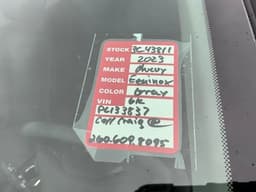 STOCK PC43811
YEAR 2023
MAKE Chevy
MODEL Equinox
COLOR Gray
VIN 6k
PL133837
Call Craig @
360.609.8095